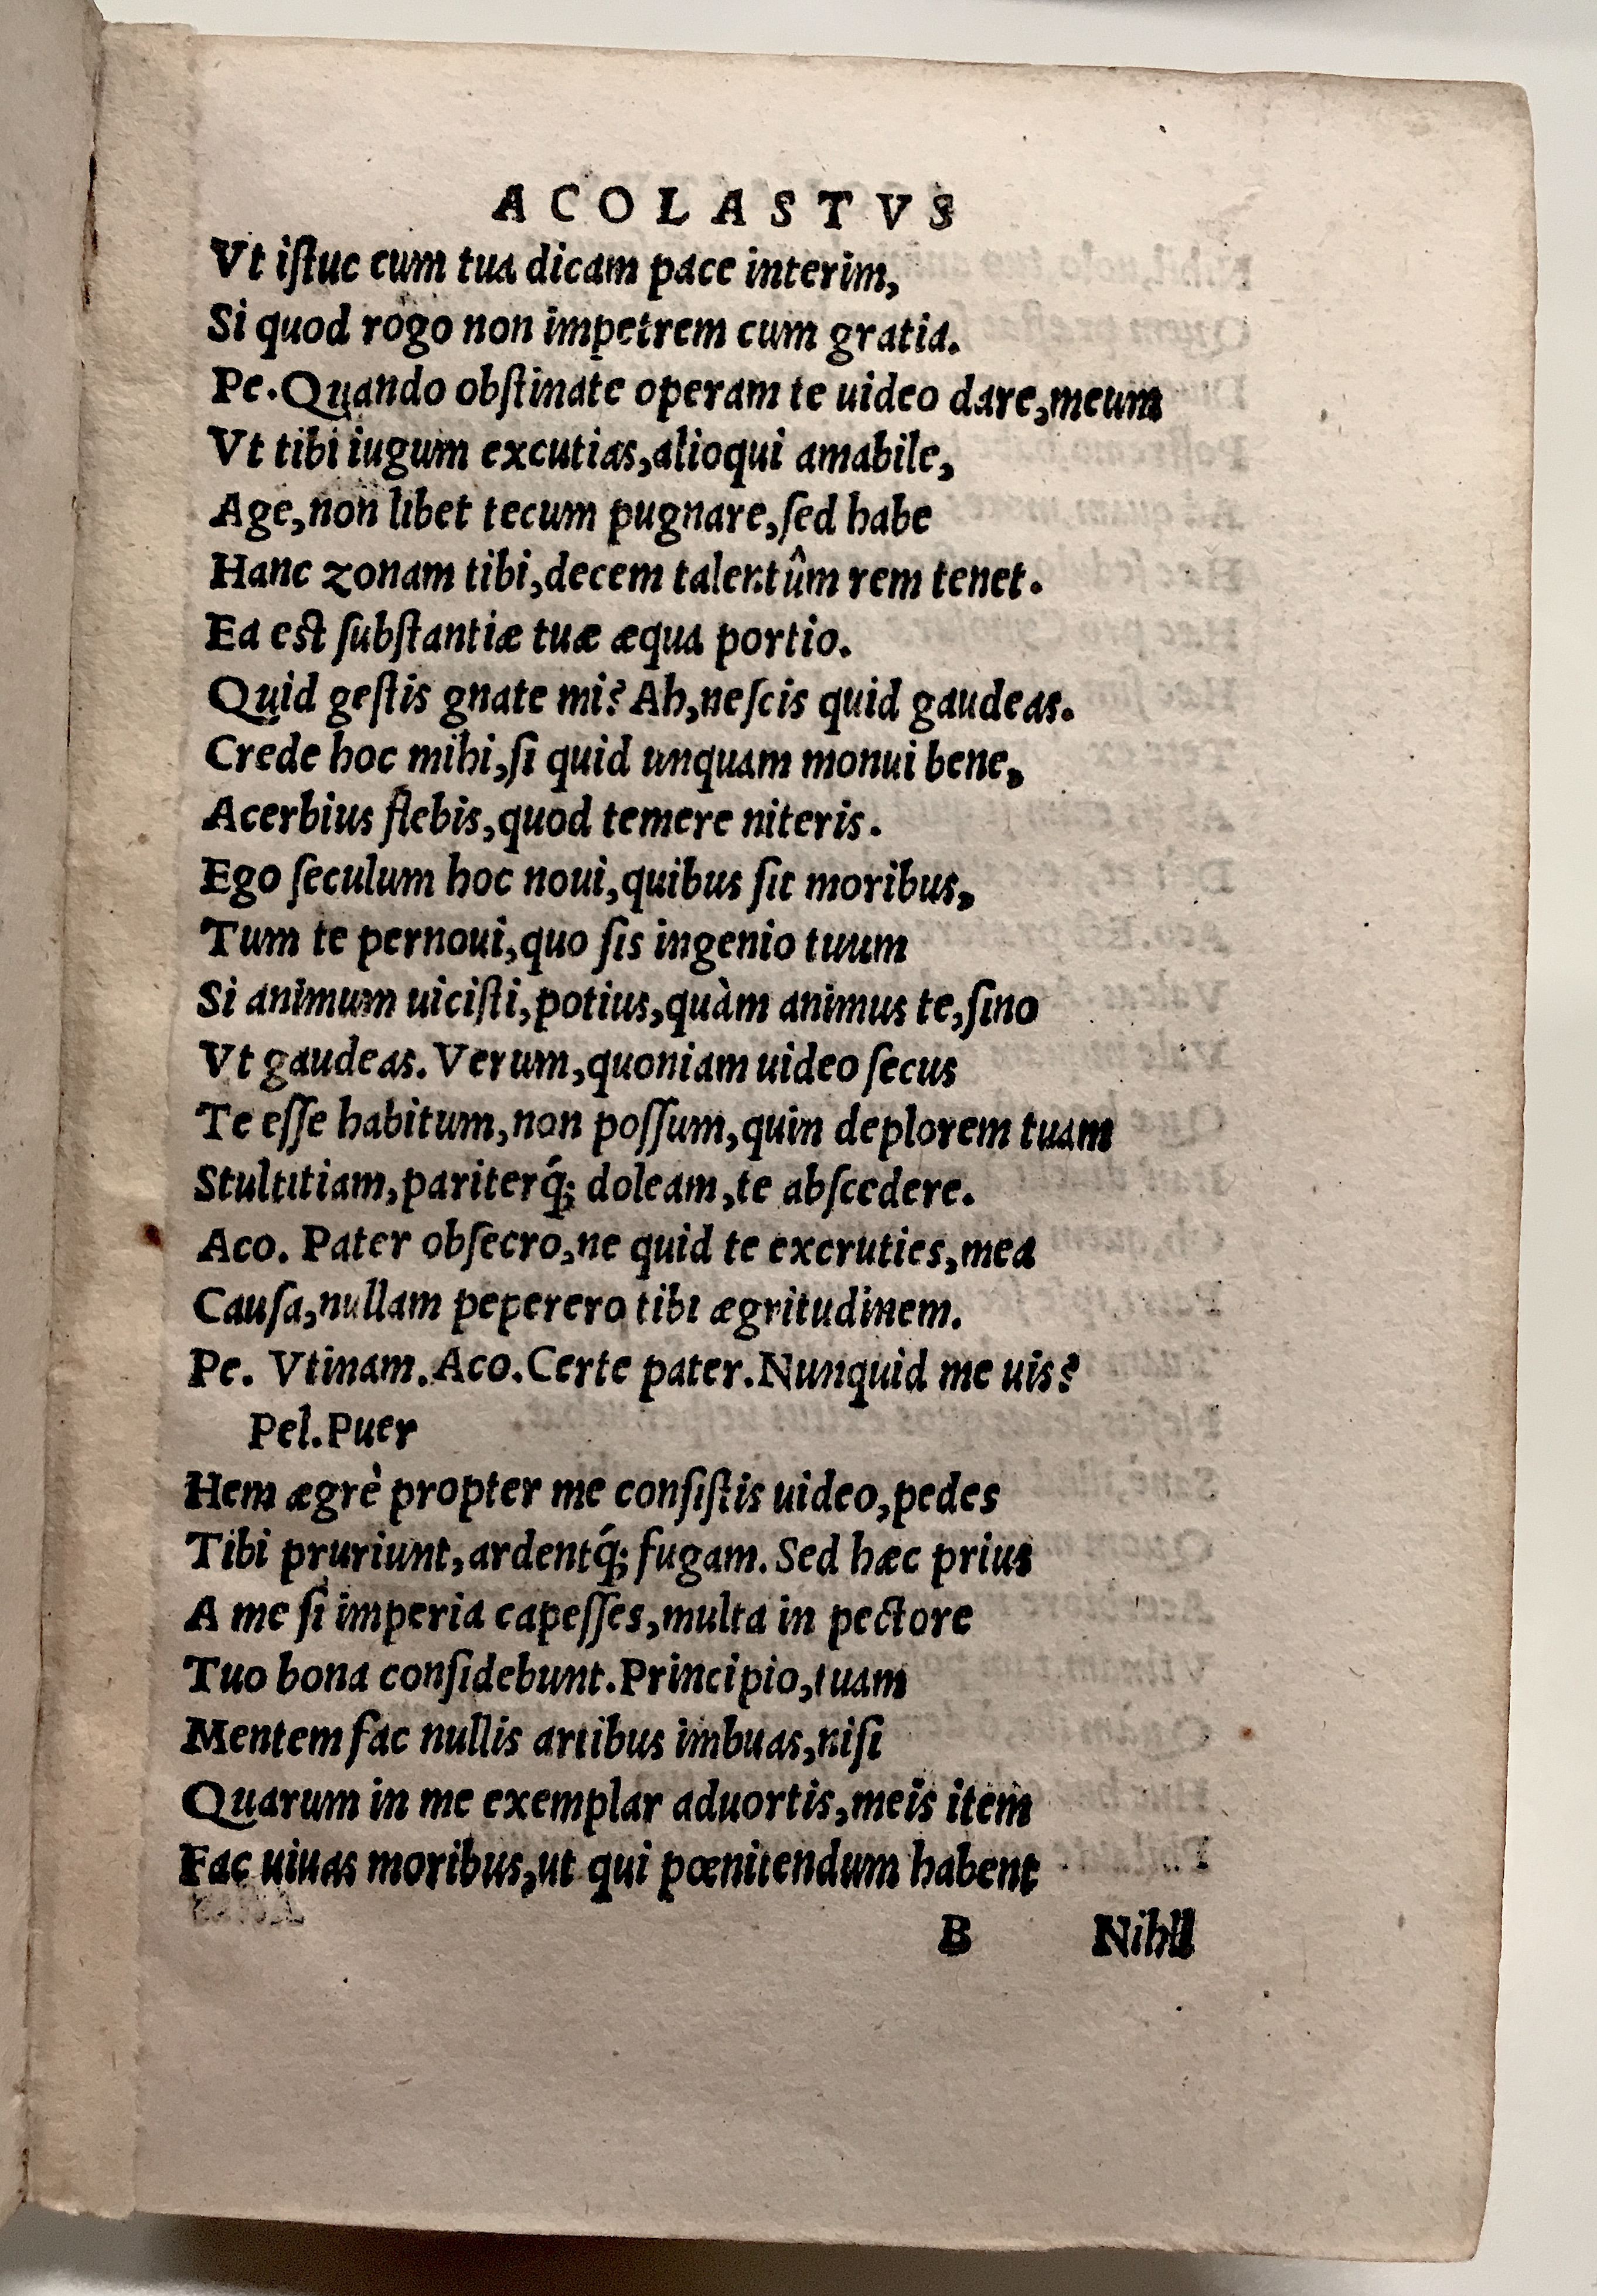 ACOLASTVS
Vt iſtuc cum tua dicam pace interim,
Si quod rogo non impetrem cum gratia.
Pe.Quando obſtinate operam te uideo dare,meum
Vt tibi iugum excutias,alioqui amabile,
Age,non libet tecum pugnare,ſed habe
Hanc zonam tibi,decem talentûm rem tenet.
Ea eſt ſubſtantiæ tuæ æqua portio.
Quid geſtis gnate mi? Ah,neſcis quid gaudeas.
Crede hoc mihi,ſi quid unquam monui bene,
Acerbius flebis,quod temere niteris.
Ego ſeculum hoc noui,quibus ſit moribus,
Tum te pernoui,quo ſis ingenio tuum
Si animum uiciſti,potius,quàm animus te,ſino
Vt gaudeas. Verum,quoniam uideo ſecus
Te eſſe habitum,non poſſum,quin deplorem tuam
Stultitiam,pariterq́; doleam,te abſcedere.
Aco. Pater obſecro,ne quid te excruties,mea
Cauſa,nullam peperero tibi ægritudinem.
Pe. Vtinam.Aco.Certe pater.Nunquid me uis?
Pel.Puer
Hem ægrè propter me conſiſtis uideo,pedes
Tibi pruriunt,ardentq́; fugam. Sed hæc prius
A me ſi imperia capeſſes,multa in pectore
Tuo bona conſidebunt.Principio,tuam
Mentem fac nullis artibus imbuas,niſi
Quarum in me exemplar aduortis,meis item
Fac uiuas moribus,ut qui pœnitendum habent
B Nihil